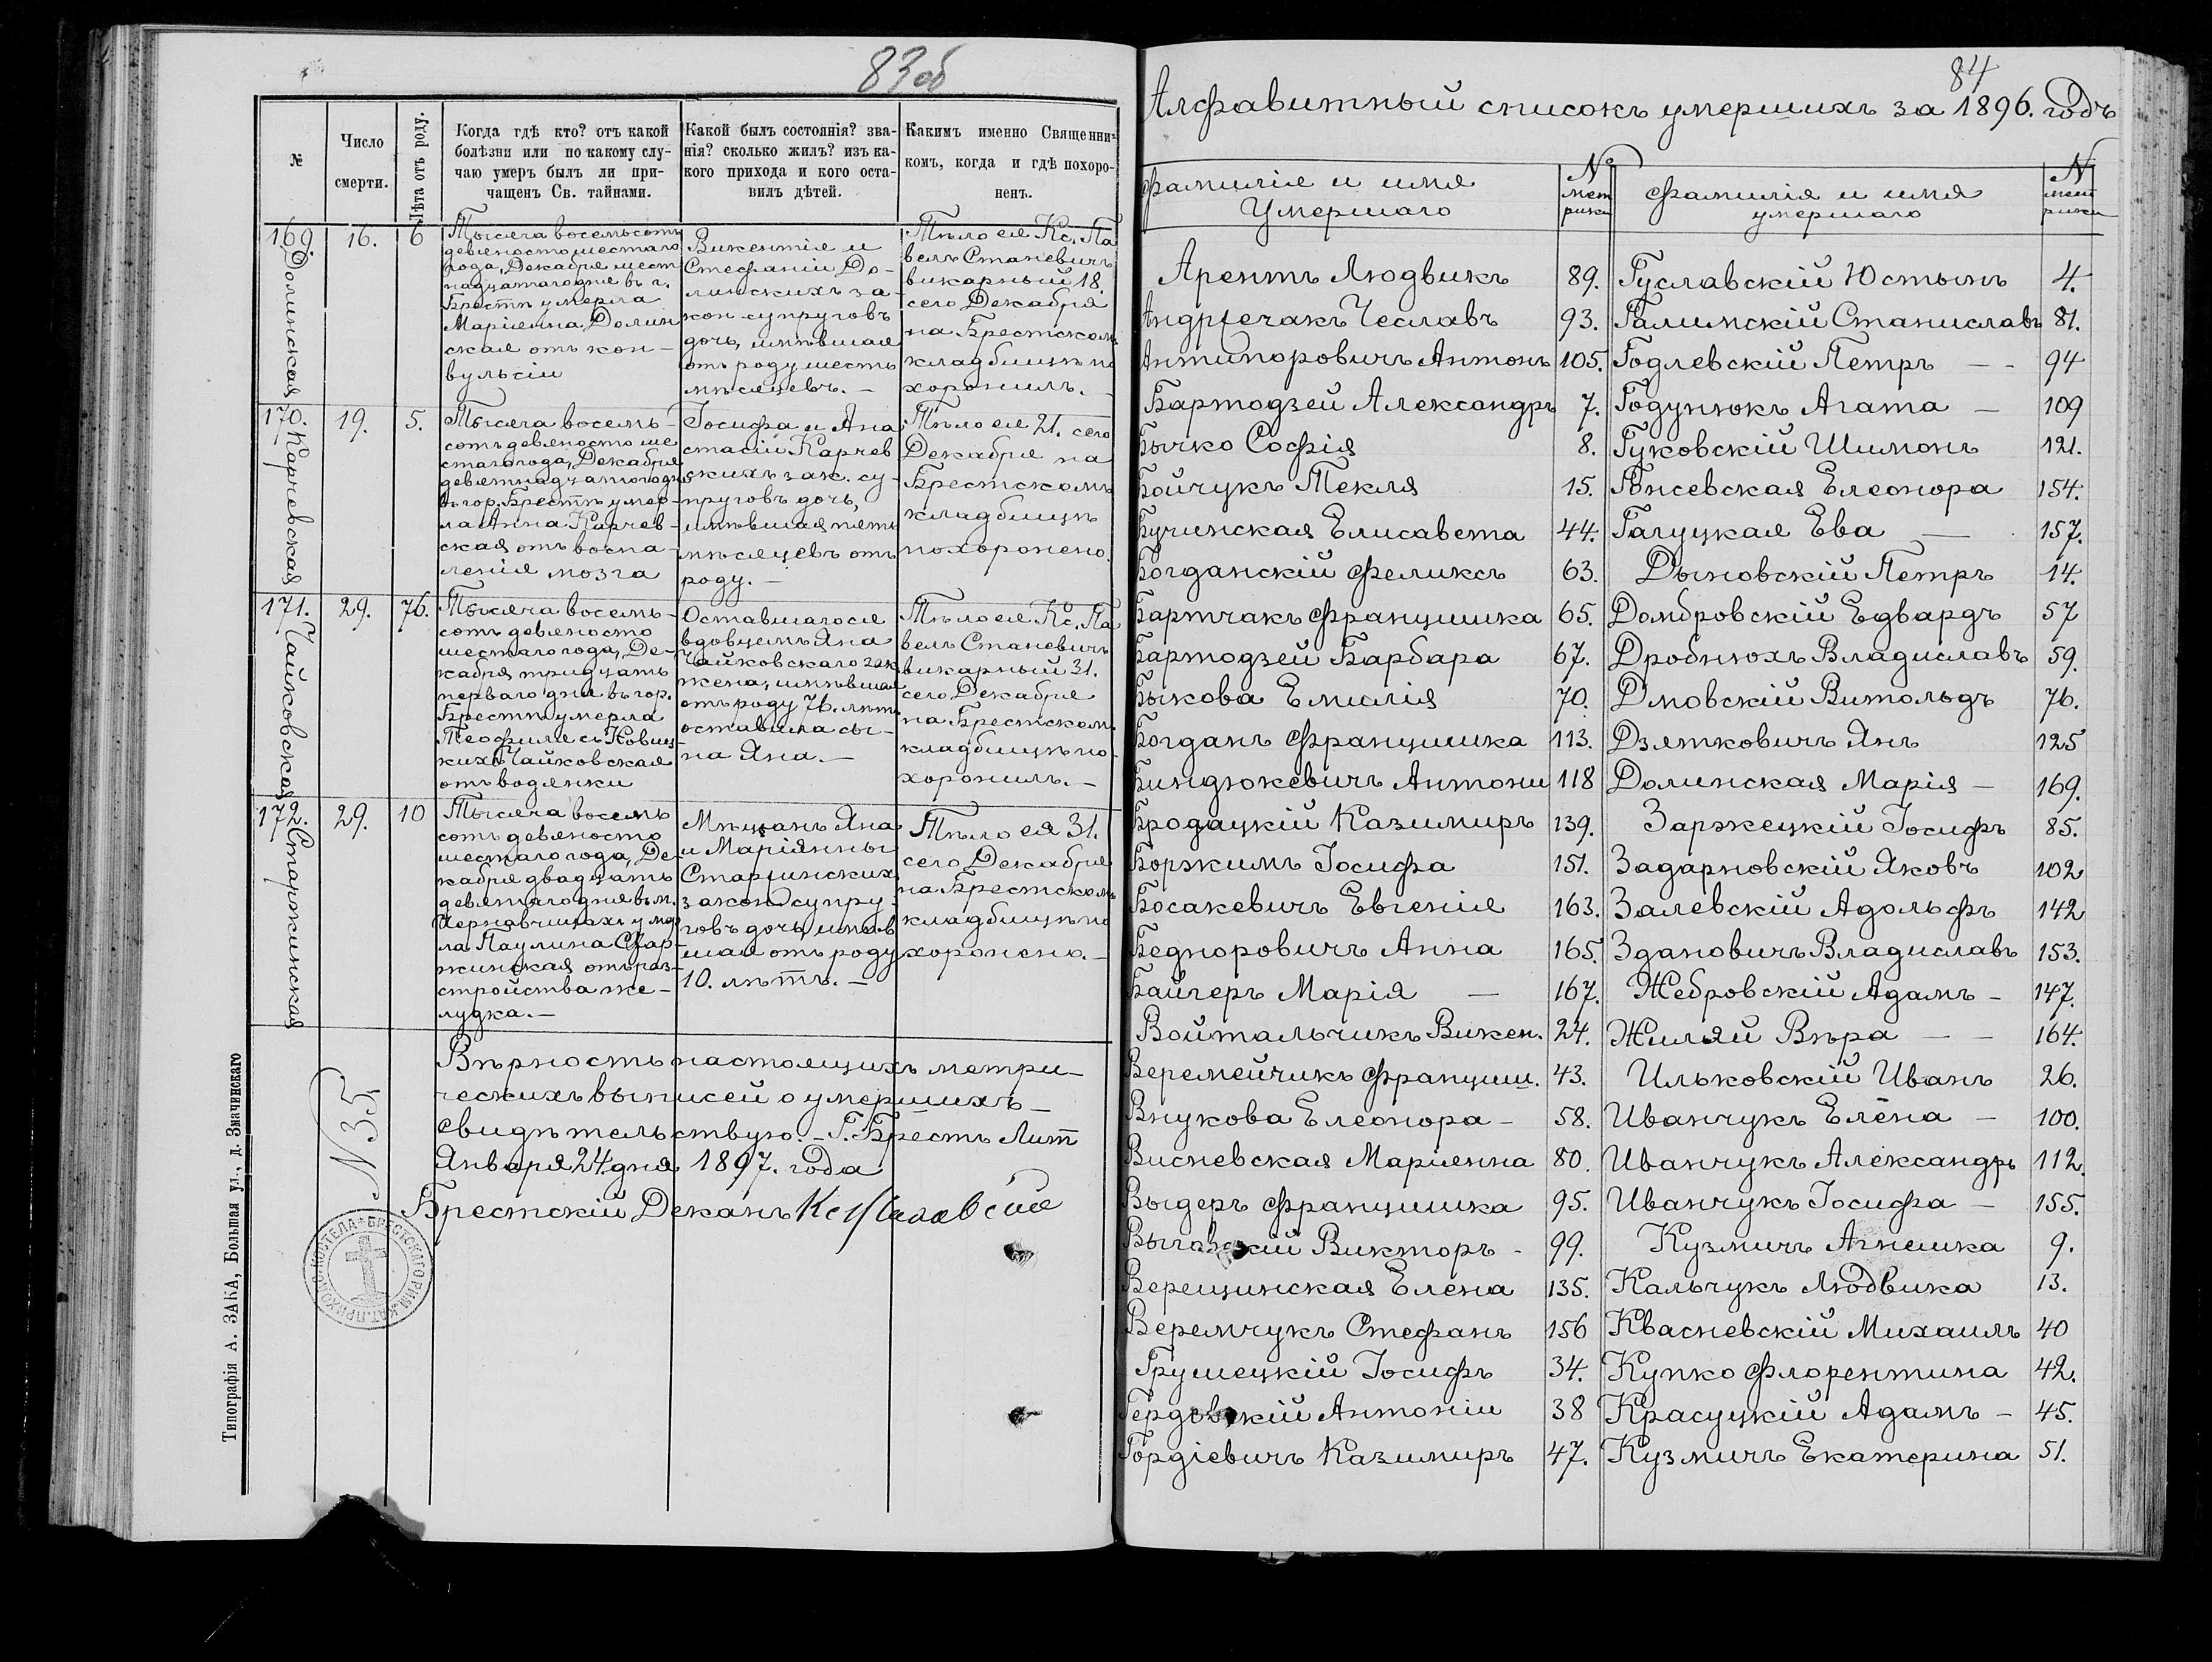 83 об
№
Число
смерти.
Лѣта отъ роду.
Когда гдѣ кто? отъ какой
болѣзни или по какому слу-
чаю умеръ былъ ли при-
чащенъ Св. тайнами.
Какой былъ состоянія? зва-
нія? сколько жилъ? изъ ка-
кого прихода и кого оста-
вилъ дѣтей.
Какимъ именно Священни-
комъ, когда и гдѣ похоро-
ненъ.
169.
Долинская
16.
6
Тысяча восемьсотъ
девяностошестаго
года, Декабря шест
надцатаго дня въ г.
Брестѣ умерла
Маріянна Долин
ская отъ кон-
вульсіи
Викентія и
Стефаніи До-
линскихъ за-
кон супруговъ
дочь, имѣвшая
отъ роду шесть
мѣсяцевъ. -
Тѣло ея Кс. Па
велъ Станевичъ
викарный 18.
сего Декабря
на Брестскомъ
кладбищѣ по
хоронилъ. -
170.
Карчевская
19.
5.
Тысяча восемь-
сотъ девяносто ше
стаго года, Декабря
девятнадцатаго дня
въ гор. Брестѣ умер-
ла Анна Карчев-
ская отъ воспа-
ленія мозга
Іосифа и Ана
стасіи Карчев
скихъ зак. су-
пруговъ дочь,
имѣвшая пять
мѣсяцевъ отъ
роду. -
Тѣло ея 21. сего
Декабря на
Брестскомъ
кладбищѣ
похоронено.
171.
Чайковская
29.
76.
Тысяча восемь-
сотъ девяносто
шестаго года, Де-
кабря тридцать
перваго дня въ гор.
Брестѣ умерла
Теофиля съ Новиц
кихъ Чайковская
отъ водянки
Оставшагося
вдовцемъ Яна
Чайковскаго зак
жена, имѣвшая
отъ роду 76. лѣтъ
оставила сы-
на Яна. -
Тѣло ея Кс. Па
велъ Станевичъ
викарный 31.
сего Декабря
на Брестском.
кладбищѣ по-
хоронилъ. -
172.
Старжинская
29.
10
Тысяча восемь
сотъ девяносто
шестаго года, Де-
кабря двадцать
девятаго дня въ м.
Чернавчицахъ умер
ла Паулина Стар-
жинская отъ раз-
стройства же-
лудка. -
Мѣщанъ Яна
и Маріянны
Старжинских
закон супру-
говъ дочь, имѣв
шая отъ роду
10. лѣтъ. -
Тѣло ея 31.
сего Декабря
на Брестскомъ
кладбищѣ по
хоронено. -
Вѣрность настоящихъ метри-
ческихъ выписей о умершихъ
свидѣтельствую. - Г. Брестъ Лит
Января 24 дня 1897. года
Брестскій Деканъ Кс
N 35
Типографія А. ЗАКА, Большая ул., д. Змачинскаго
84
Алфавитный списокъ умершихъ за 1896. годъ
Фамилія и имя
Умершаго
№
мет
рики
Фамилія и имя
умершаго
№
мет
рики
Арентъ Людвикъ 89. Гуславскій Юстынъ 4.
Андржечакъ Чеславъ 93. Галимскій Станиславъ 81.
Антипоровичъ Антонъ 105. Годлевскій Петръ - - 94
Бартодзей Александръ 7. Годунюкъ Агата - 109
Бычко Софія 8. Гуковскій Шимонъ 121.
Бойчукъ Текля 15. Гонсевская Елеонора 154.
Бучинская Елисавета 44. Галуцкая Ева - 157.
Богданскій Феликсъ 63. Дыновскій Петръ 14.
Бартчакъ Францишка 65. Домбровскій Едвардъ 57
Бартодзей Барбара 67. Дробнюхъ Владиславъ 59.
Быкова Емилія 70. Дмовскій Витольдъ 76.
Богданъ Францишка 113. Дзятковичъ Янъ 125
Биндюкевичъ Антони 118 Долинская Марія - 169.
Бродацкій Казимиръ 139. Заржецкій Іосифъ 85.
Боржимъ Іосифа 151. Задарновскій Яковъ 102
Босакевичъ Евгенія 163. Залевскій Адольфъ 142
Беднаровичъ Анна 165. Здановичъ Владиславъ 153.
Байгеръ Марія - 167. Жебровскій Адамъ - 147.
Войтальчикъ Викен. 24. Жиляй Вѣра - - 164.
Веремейчикъ Францишк. 43. Ильковскій Иванъ 26.
Внукова Елеонора - 58. Иванчукъ Елена - 100.
Висневская Маріянна 80. Иванчукъ Александръ 112.
Выдеръ Францишка 95. Иванчукъ Іосифа - 155.
Выговскій Викторъ - 99. Кузмичъ Агнешка 9.
Верещинская Елена 135. Кальчукъ Людвика 13.
Веремчукъ Стефанъ 156 Квасневскій Михаилъ 40
Грушецкій Іосифъ 34. Купко Флорентина 42.
Гердовскій Антоніи 38 Красуцкій Адамъ - 45.
Гордіевичъ Казимиръ 47. Кузмичъ Екатерина 51.